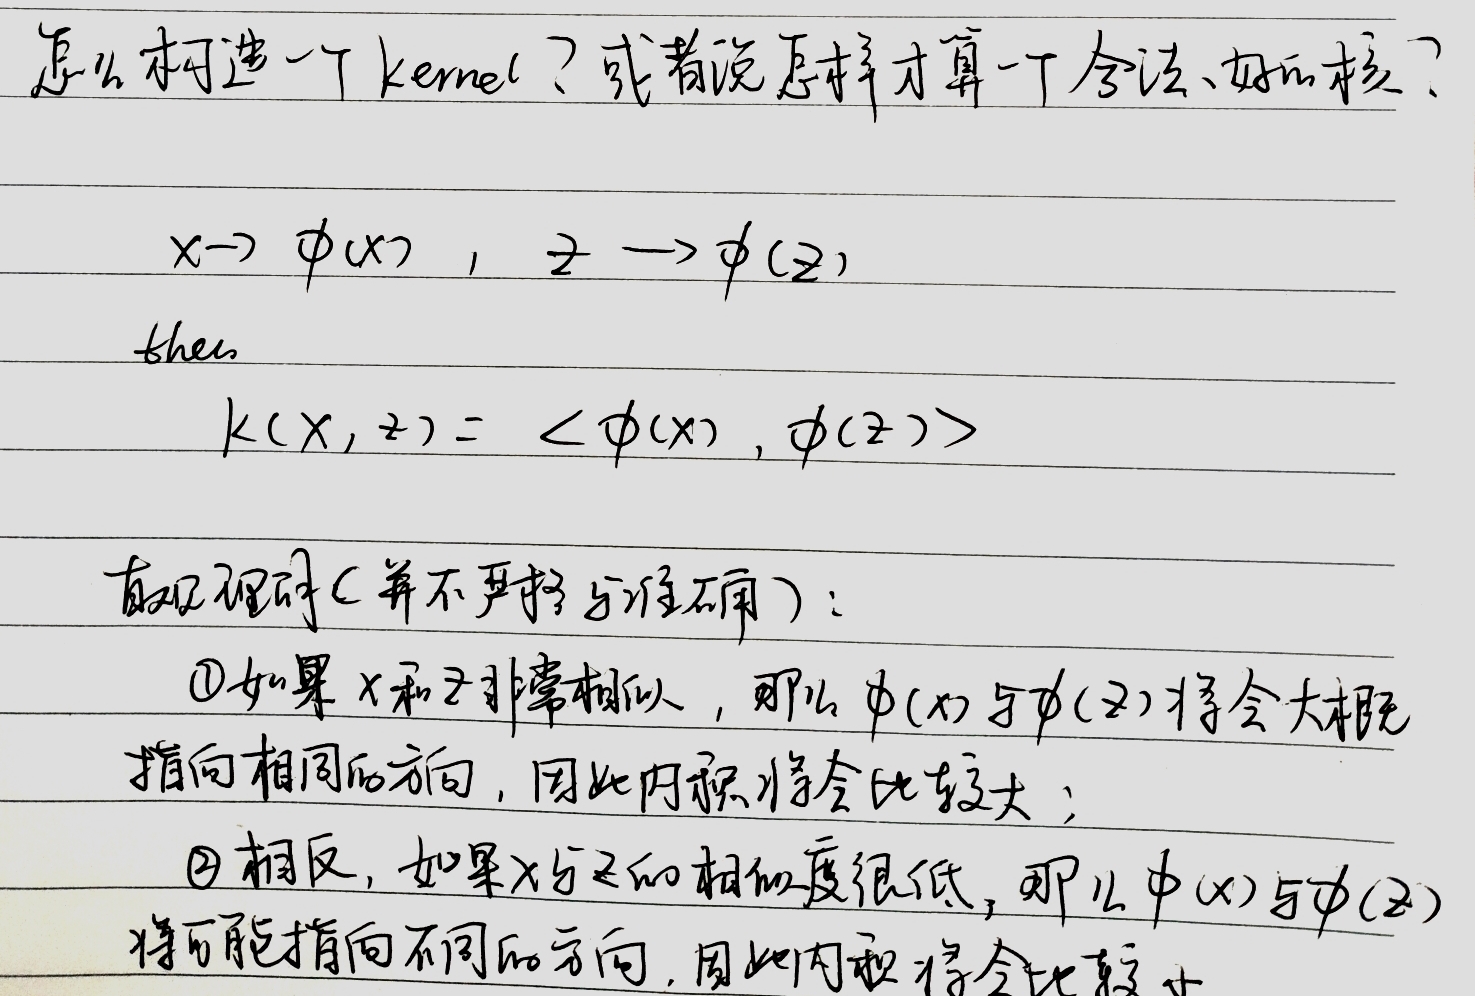 怎么构造一个 kernel？或者说怎样才算一个合法、好的核？
x→ φ(x) , z → φ(z)
then
K(x, z) = <φ(x), φ(z)>
直观理解(并不严格与准确)：
①如果 x 和 z 非常相似，那么 φ(x) 与 φ(z) 将会大概
指向相同的方向，因此内积将会比较大；
②相反，如果 x 与 z 的相似度很低，那么 φ(x) 与 φ(z)
将可能指向不同的方向，因此内积将会比较小